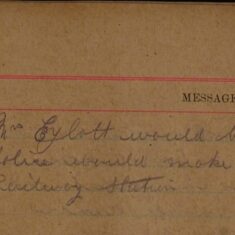 MESSAGE
Mrs Exlott would b
Police would make
Railway Station